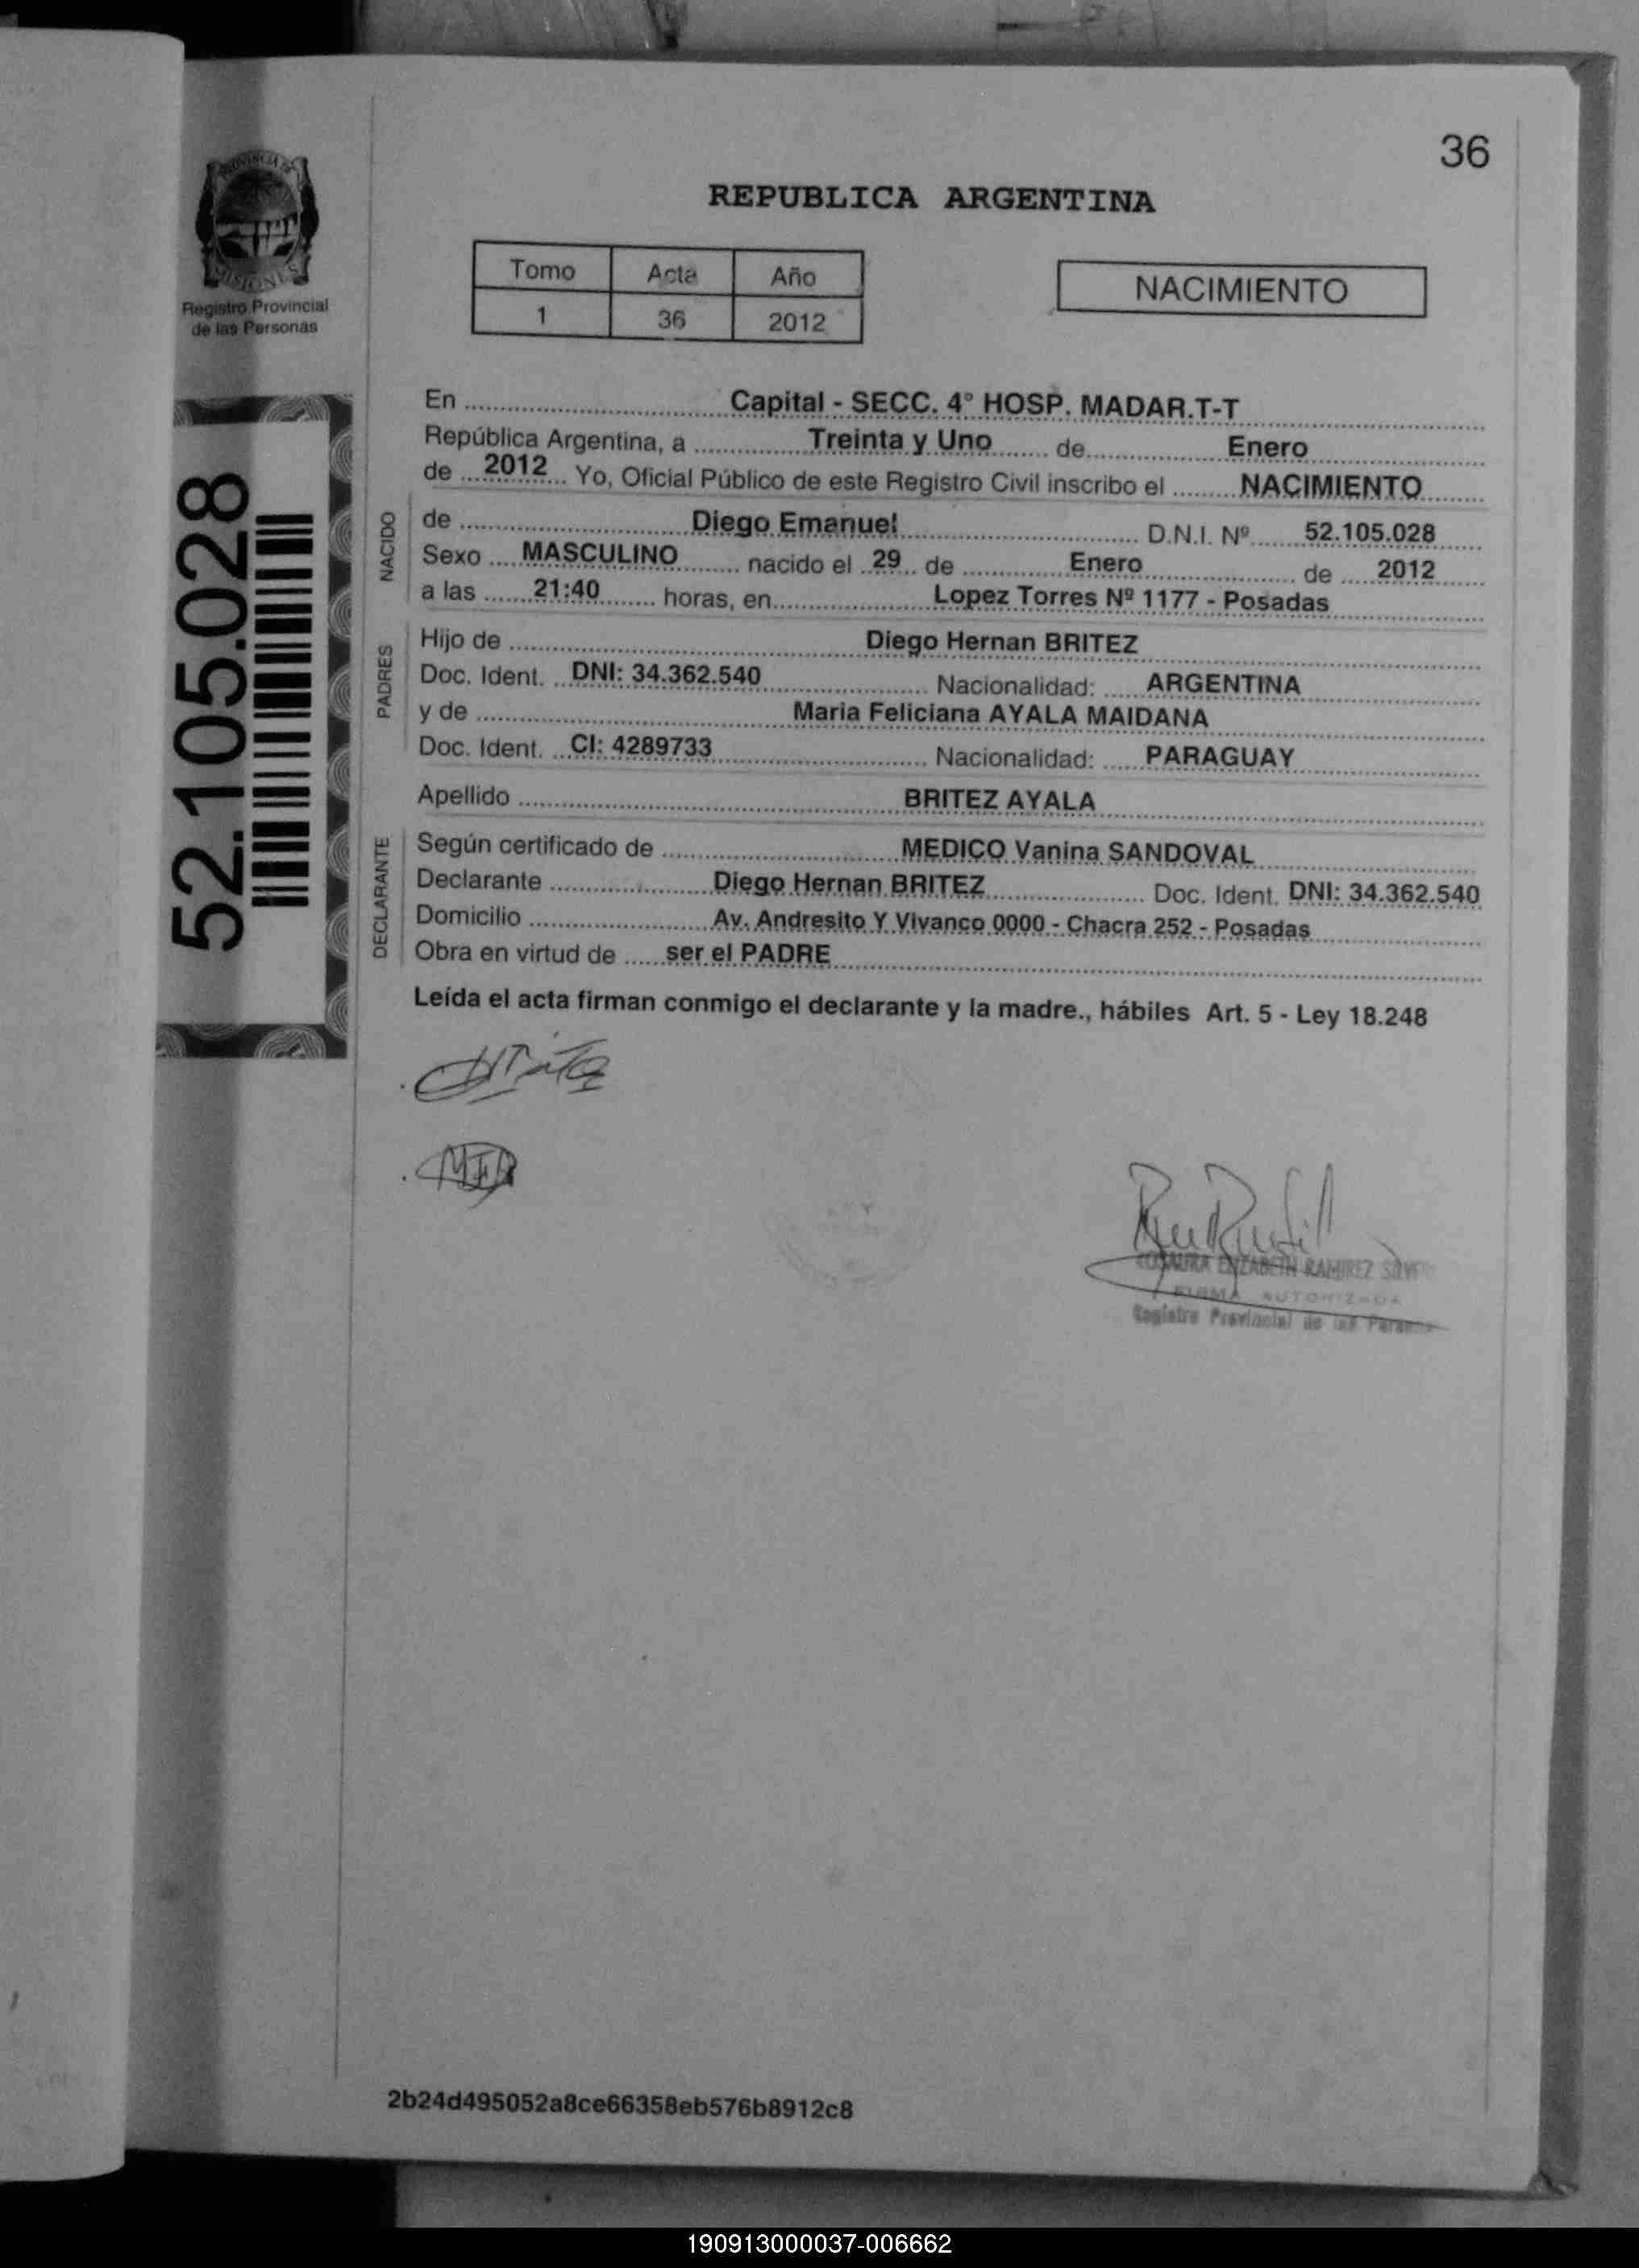 36
PROVINCIA DE
MISIONES
Registro Provincial
de las Personas
REPUBLICA ARGENTINA
Tomo Acta Año
1 36 2012
NACIMIENTO
52.105.028
En Capital - SECC. 4° HOSP. MADAR.T-T
República Argentina, a Treinta y Uno de Enero
de 2012 Yo, Oficial Público de este Registro Civil inscribo el NACIMIENTO
NACIDO
de Diego Emanuel D.N.I. Nº 52.105.028
Sexo MASCULINO nacido el 29 de Enero de 2012
a las 21:40 horas, en Lopez Torres Nº 1177 - Posadas
PADRES
Hijo de Diego Hernan BRITEZ
Doc. Ident. DNI: 34.362.540 Nacionalidad: ARGENTINA
y de Maria Feliciana AYALA MAIDANA
Doc. Ident. CI: 4289733 Nacionalidad: PARAGUAY
Apellido BRITEZ AYALA
DECLARANTE
Según certificado de MEDICO Vanina SANDOVAL
Declarante Diego Hernan BRITEZ Doc. Ident. DNI: 34.362.540
Domicilio Av. Andresito Y Vivanco 0000 - Chacra 252 - Posadas
Obra en virtud de ser el PADRE
Leída el acta firman conmigo el declarante y la madre., hábiles Art. 5 - Ley 18.248
ELIZABETH RAMIREZ
FIRMA AUTORIZADA
Registro Provincial de las
2b24d495052a8ce66358eb576b8912c8
190913000037-006662